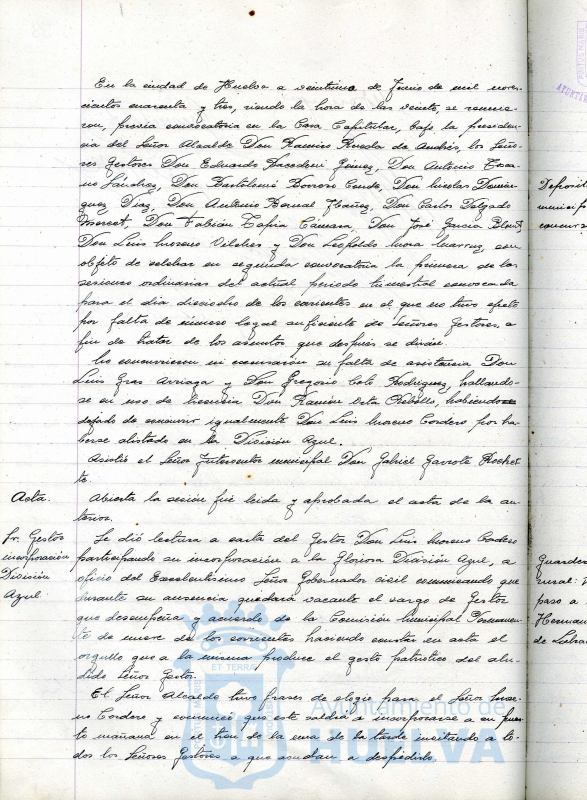 En la ciudad de Huelva a veintiuno de Junio de mil nove-
cientos cuarenta y tres, siendo la hora de las veinte, se reunie-
ron, previa convocatoria en la Casa Capitular, bajo la presiden-
cia del Señor Alcalde Don Ramiro de Andrés, los Seño-
res Gestores Don Eduardo Gómez, Don Antonio
Sánchez, Don Bartolomé Borrero Conde, Don Nicolás Domín-
guez Díaz, Don Bernal Ibáñez, Don Carlos Delgado
Don Fabián Tapia Cámara, Don José García
Don Luis Moreno Vilches y Don Leopoldo Mora con
objeto de celebrar en segunda convocatoria la primera de las
sesiones ordinarias del actual periodo trimestral convocada
para el día dieciocho de los corrientes en el que no tuvo efecto
por falta de número legal suficiente de Señores Gestores, a
fin de tratar de los asuntos que después se dirán.
No concurrieron ni excusaron su falta de asistencia Don
Luis Arriaga y Don Gregorio Rodríguez, hallando-
se en uso de licencia Don Ramón Rebollo, habiendo
dejado de concurrir igualmente Don Luis Moreno Cordero por ha-
berse alistado en la División Azul.
Asistió el Señor Interventor municipal Don Gabriel Garrote
te.
Acta. Abierta la sesión fué leida y aprobada el acta de la an-
terior.
Sr. Gestor
incorporación
División
Azul.
Se dió lectura a carta del Gestor Don Luis Moreno Cordero
participando su incorporación a la Gloriosa División Azul, a
oficio del Excelentísimo Señor Gobernador civil comunicando que
durante su ausencia quedará vacante el cargo de Gestor
que desempeña y acuerdo de la Comisión Municipal Permanen-
te de nueve de los corrientes haciendo constar en acta el
orgullo que a la misma produce el gesto patriótico del alu-
dido Señor Gestor.
El Señor Alcalde tuvo frases de elogio para el Señor More-
no Cordero y anunció que este saldrá a incorporarse a su pues-
to mañana en el tren de la una de la tarde invitando a to-
dos los Señores Gestores a que acudan a despedirlo.
municip
Guarder
rural:
paso a
Herman
de Labra
ET TERRA
Ayuntamiento de
HUELVA